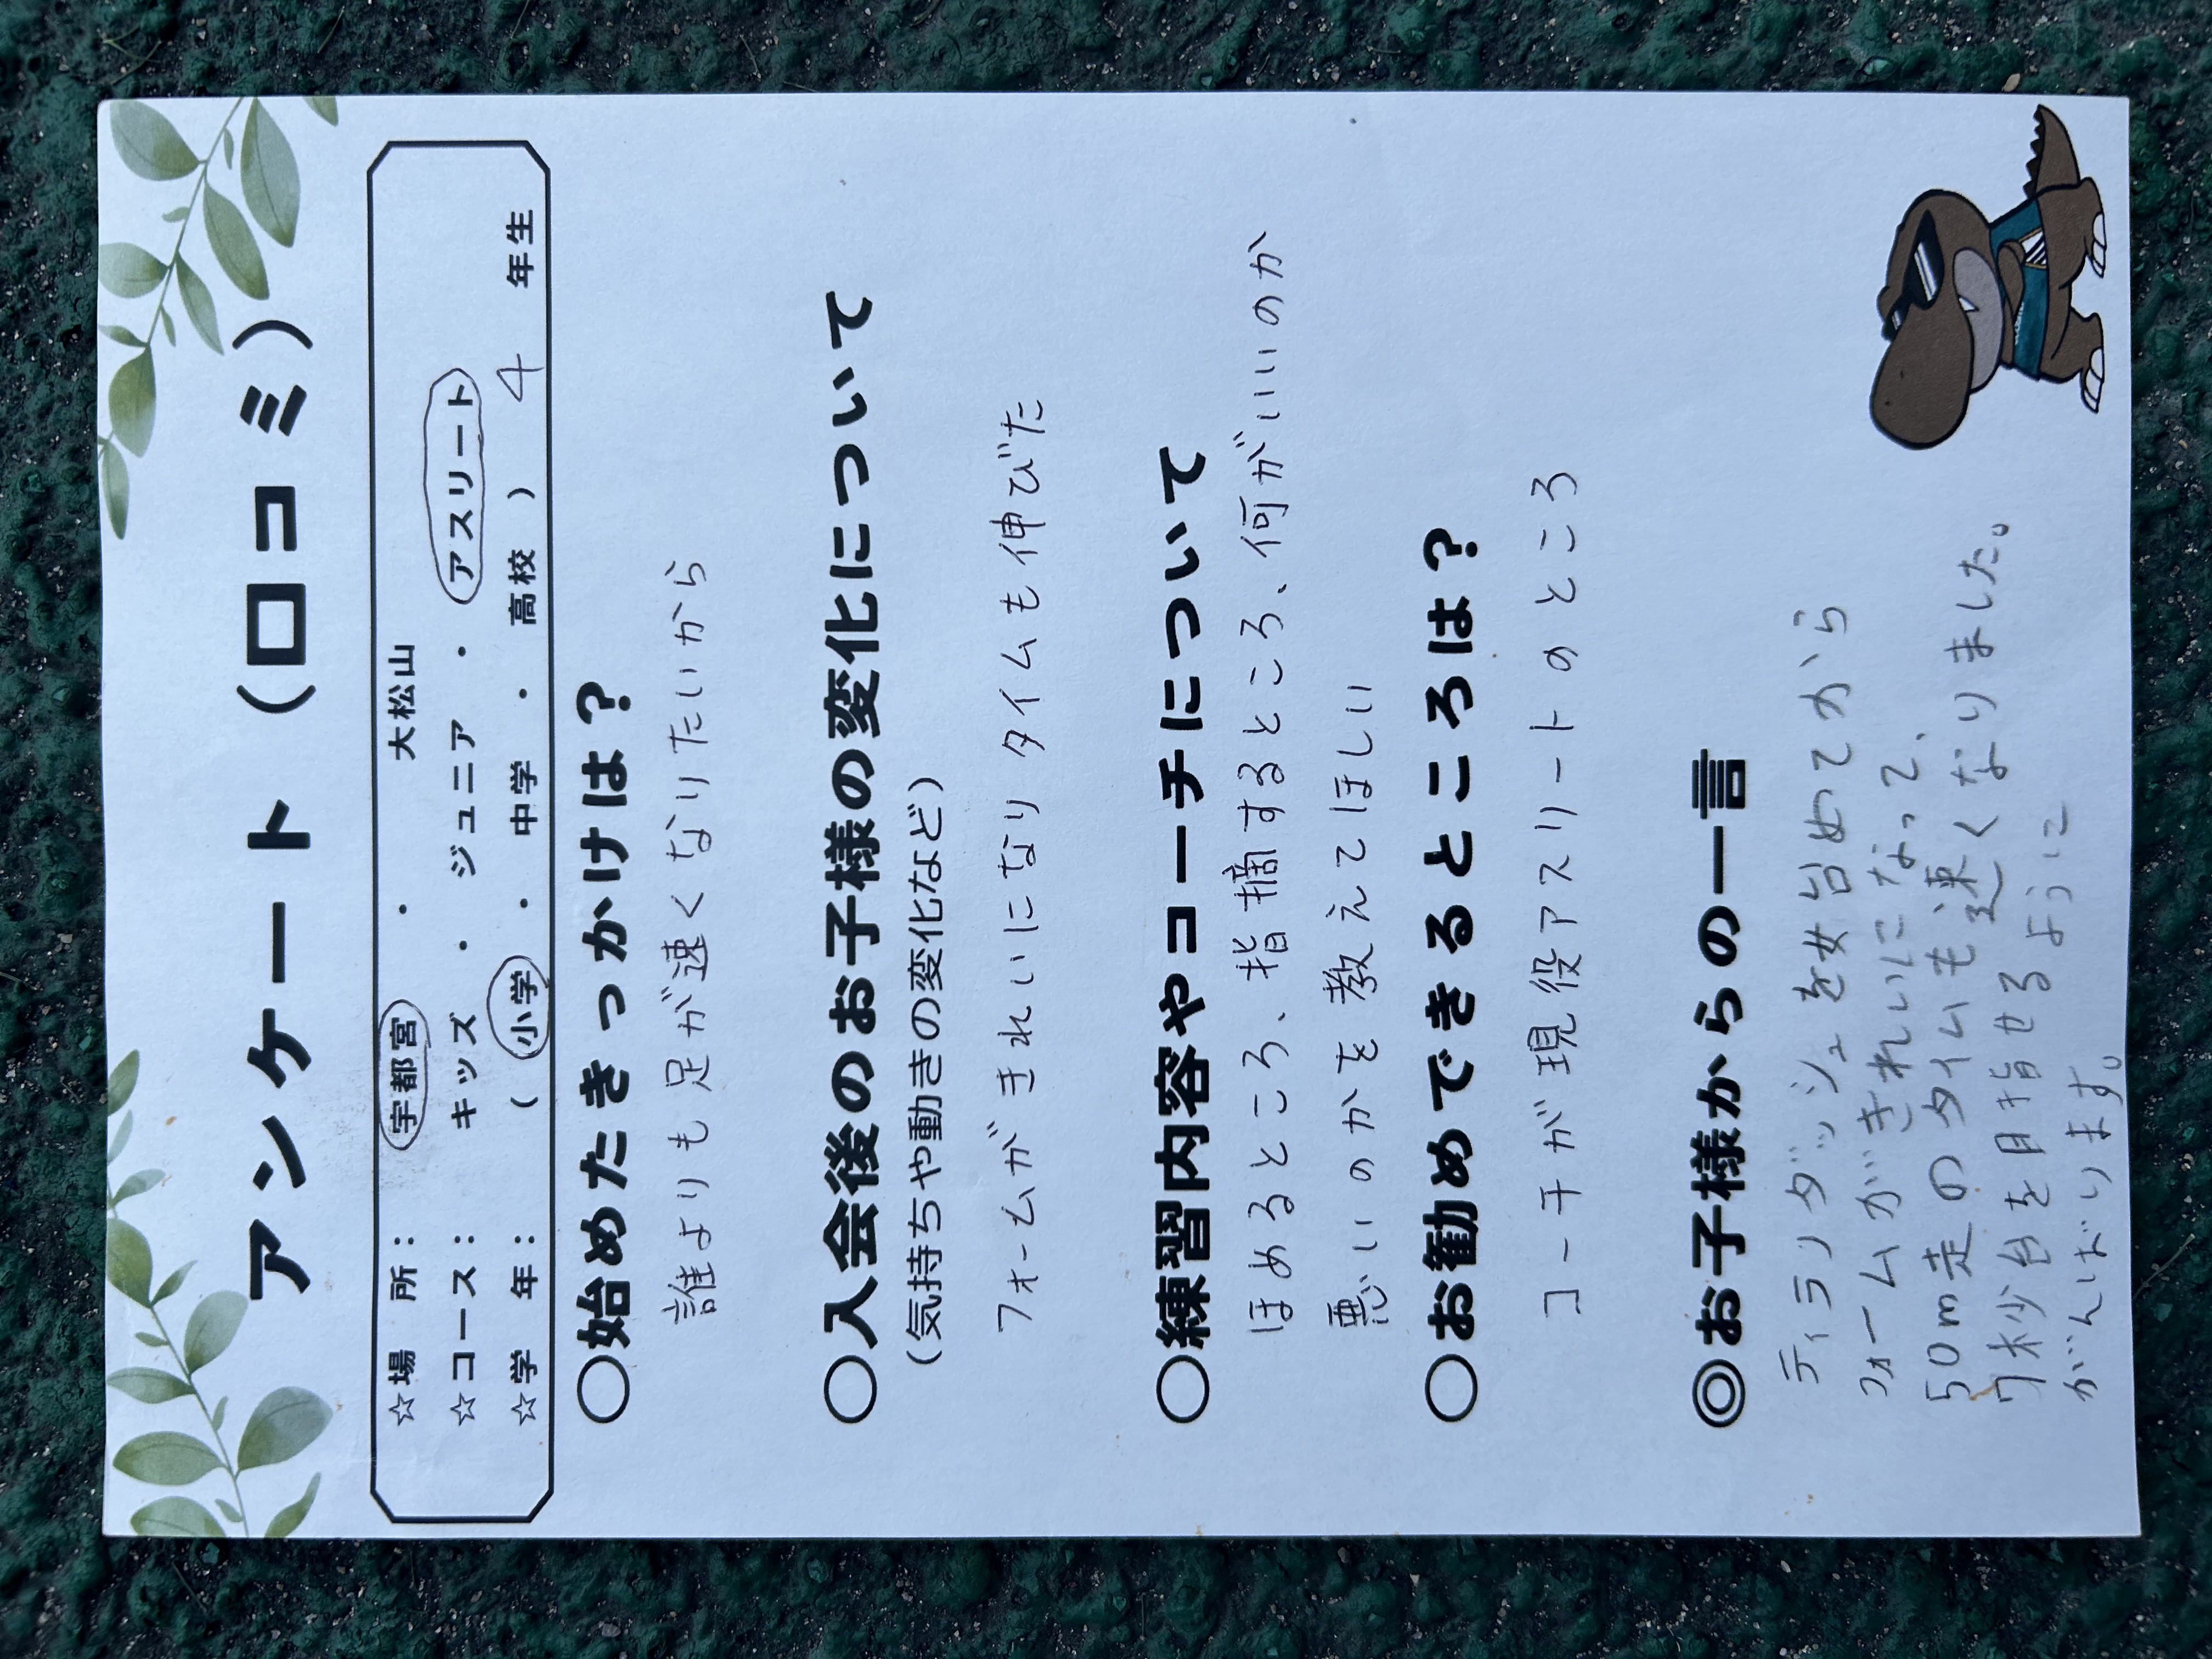 アンケート（口コミ）
☆場　所：　宇都宮　・　大松山
☆コース：　キッズ　・　ジュニア　・　アスリート
☆学　年：　（　小学　・　中学　・　高校　）　4　年生
○始めたきっかけは？
誰よりも足が速くなりたいから
○入会後のお子様の変化について
（気持ちや動きの変化など）
フォームがきれいになり タイムも伸びた
○練習内容やコーチについて
ほめるところ、指摘するところ、何がいいのか
悪いのかを教えてほしい
○お勧めできるところは？
コーチが現役アスリートのところ
◎お子様からの一言
ティラノダッシュを始めてから
フォームがきれいになって、
50m走のタイムも速くなりました。
7秒台を目指せるように
がんばります。